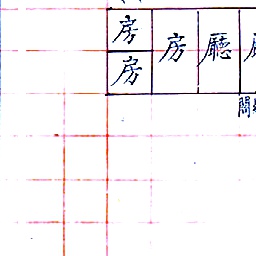 房
房
房
廳
間